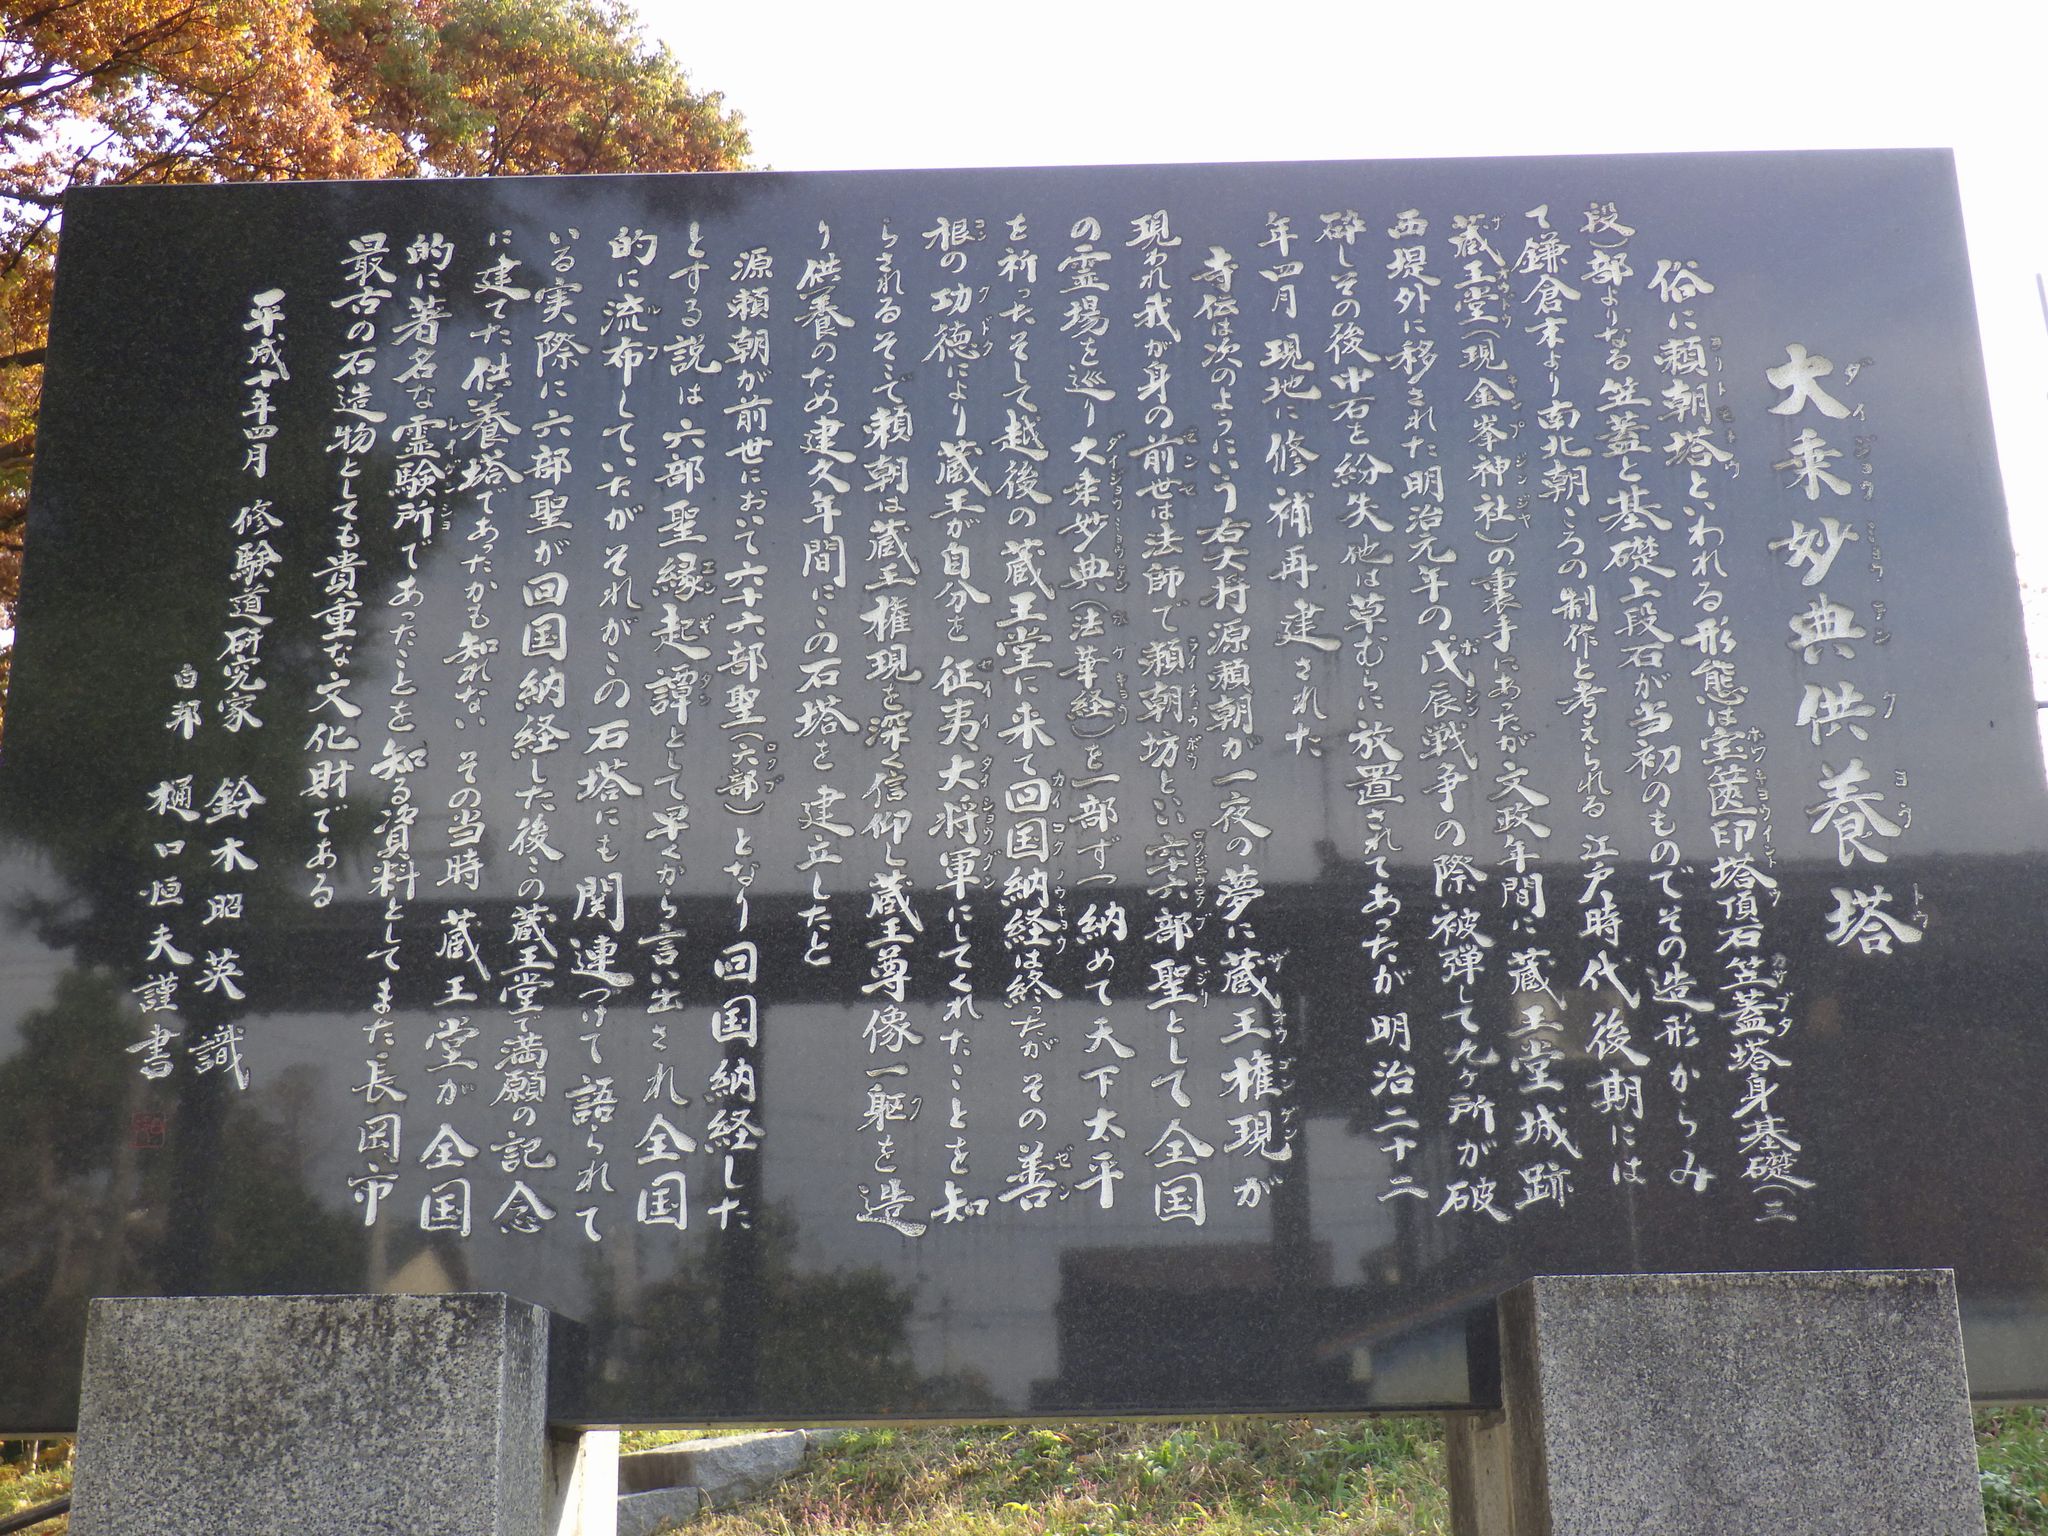 大乗妙典供養塔
俗に頼朝塔といわれる形態は宝篋印塔頂石笠蓋塔身基礎(二
段)部よりなる笠蓋と基礎上段石が当初のものでその造形からみ
て鎌倉末より南北朝ころの制作と考えられる江戸時代後期には
蔵王堂(現金峯神社)の裏手にあったが文政年間に蔵王堂城跡
西堤外に移された明治元年の戊辰戦争の際被弾して九ヶ所が破
砕しその後中石を紛失他は草むらに放置されてあったが明治二十二
年四月現地に修補再建された
寺伝は次のようにいう右大将源頼朝が一夜の夢に蔵王権現が
現われ我が身の前世は法師で頼朝坊とい六十六部聖として全国
の霊場を巡り大乗妙典(法華経)を一部ずつ納めて天下太平
を祈ったそして越後の蔵王堂に来て回国納経は終ったがその善
根の功徳により蔵王が自分を征夷大将軍にしてくれたことを知
らされるそこで頼朝は蔵王権現を深く信仰し蔵王尊像一躯を造
り供養のため建久年間にこの石塔を建立したと
源頼朝が前世において六十六部聖(六部)となり回国納経した
とする説は六部聖縁起譚として早くから言い出され全国
的に流布していたがそれがこの石塔にも関連つけて語られて
いる実際に六部聖が回国納経した後この蔵王堂で満願の記念
に建てた供養塔であったかも知れない その当時 蔵王堂が全国
的に著名な霊験所であったことを知る資料として また長岡市
最古の石造物としても貴重な文化財である
平成十年四月 修験道研究家 鈴木昭英 識
白邦 樋口恒夫謹書